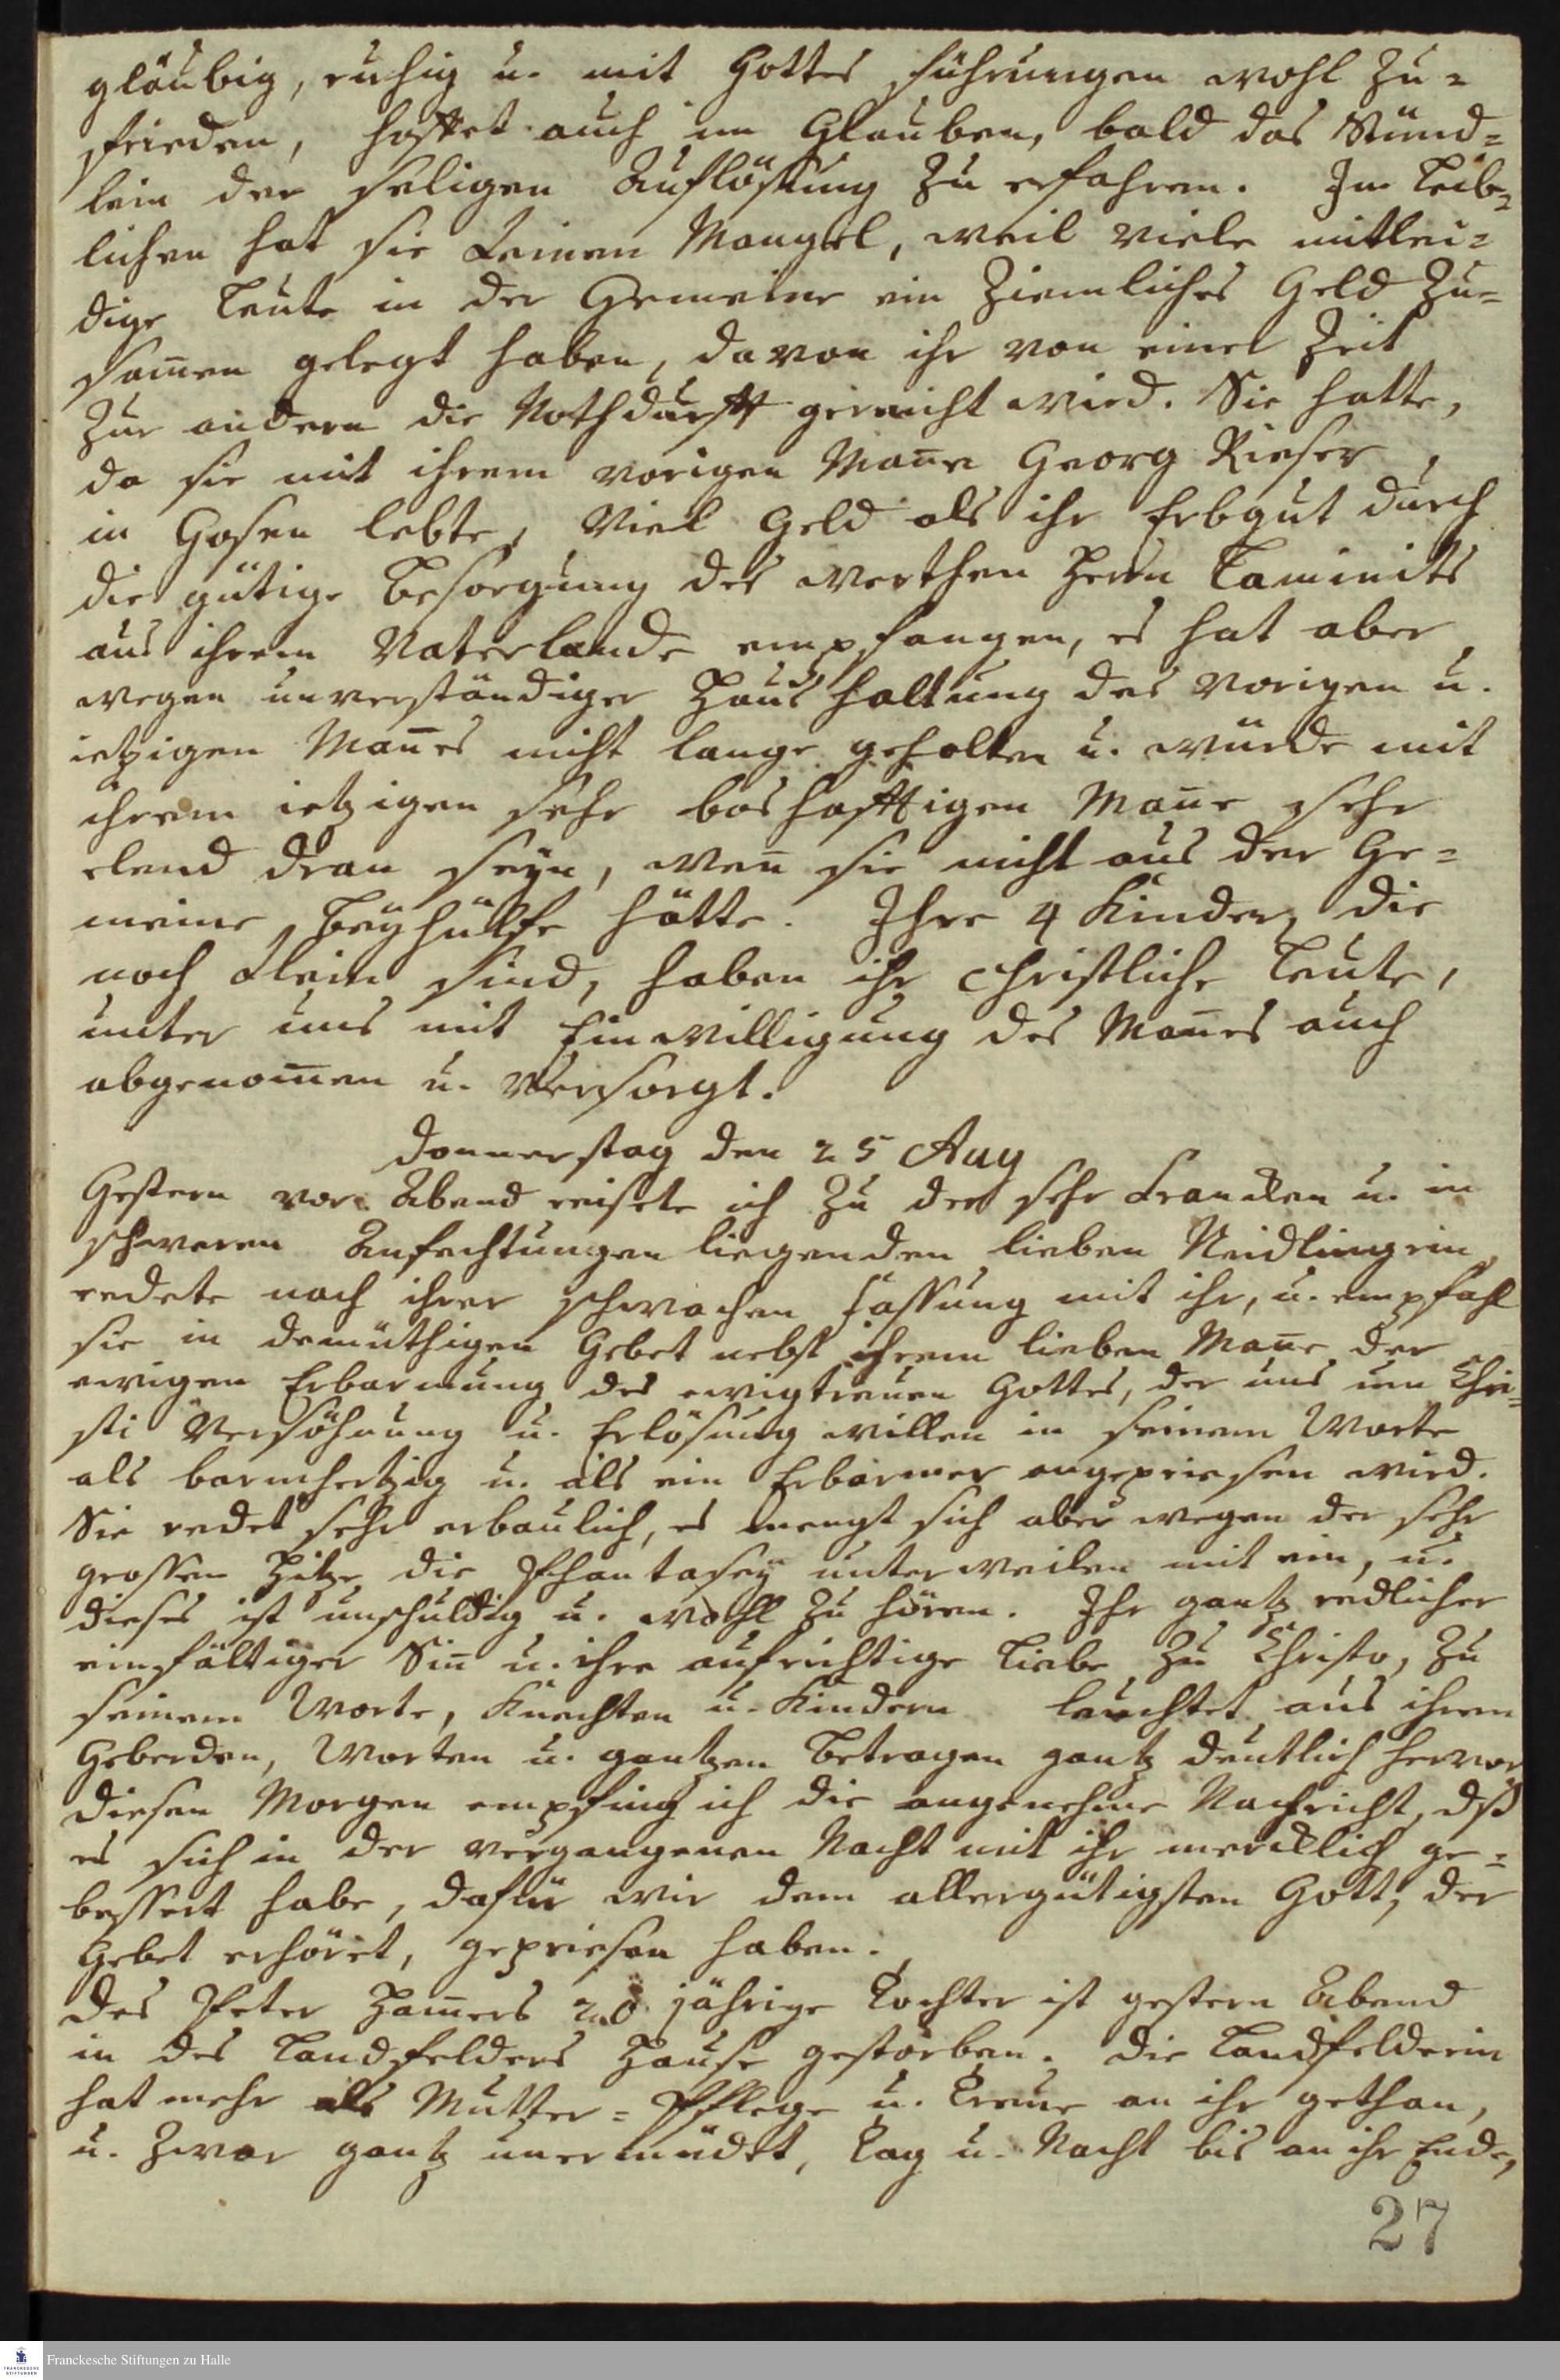 gläubig, ruhig u. mit Gottes führungen wohl zu=
frieden, hoffet auch im Glauben, bald das Stünd=
lein der seligen Auflösung zu erfahren. Im Leib=
lichen hat sie keinen Mangel, weil viele mitlei=
dige Leute in der Gemeine ein ziemliches Geld zu=
sam̄en gelegt haben, davon ihr von einer Zeit
zur andern die Nothdurfft gereicht wird. Sie hatte,
da sie mit ihrem vorigen Man̄e Georg Kieser,
in Gosen lebte, viel Geld als ihr Erbgut durch
die gütige Besorgung des werthen Herrn Laminits
aus ihrem Vaterlande empfangen, es hat aber
wegen unverständiger Haushaltung des vorigen u.
ietzigen Man̄es nicht lange gehalten u. würde mit
ihrem ietzigen sehr boshafftigen Man̄e sehr
elend dran seyn, wen̄ sie nicht aus der Ge=
meine Beyhülfe hätte. Ihre 4 Kinder, die
noch klein sind, haben ihr christliche Leute,
unter uns mit Einwilligung des Man̄es auch
abgenom̄en u. versorgt.
Donnerstag den 25 Aug
Gestern vor Abend reisete ich zu der sehr krancken u. in
schweren Anfechtungen liegenden lieben Neidlingerin,
redete nach ihrer schwachen Fassung mit ihr, u. empfahl
sie in demüthigen Gebet nebst ihrem lieben Man̄e der
ewigen Erbarmung des ewigtreuen Gottes, der uns um Chri=
sti Versöhnung u. Erlösung willen in seinem Worte
als barmhertzig u. als ein Erbarmer angepriesen wird.
Sie redet sehr erbaulich, es mengt sich aber wegen der sehr
grossen Hitze die Phantasey unterweilen mit ein, u.
dieses ist unschuldig u. wohl zu hören. Ihr gantz redlicher
einfältiger Sin̄ u. ihre aufrichtige Liebe zu Christo, zu
seinem Worte, Knechten u. Kindern leuchtet aus ihren
Geberden, Worten u. gantzen Betragen gantz deutlich hervor
Diesen Morgen empfing ich die angenehme Nachricht, dß
es sich in der vergangenen Nacht mit ihr mercklich ge=
bessert habe, dafür wir dem allergütigsten Gott, der
Gebet erhöret, gepriesen haben.
Des Peter Ham̄ers 20 jährige Tochter ist gestern Abend
in des Landfelders Hause gestorben. Die Landfelderin
hat mehr als Mutter=Pflege u. Treue an ihr gethan,
u. zwar gantz unermüdet, Tag u. Nacht bis an ihr Ende,
27
Franckesche Stiftungen zu Halle
FRANCKESCHE
STIFTUNGEN